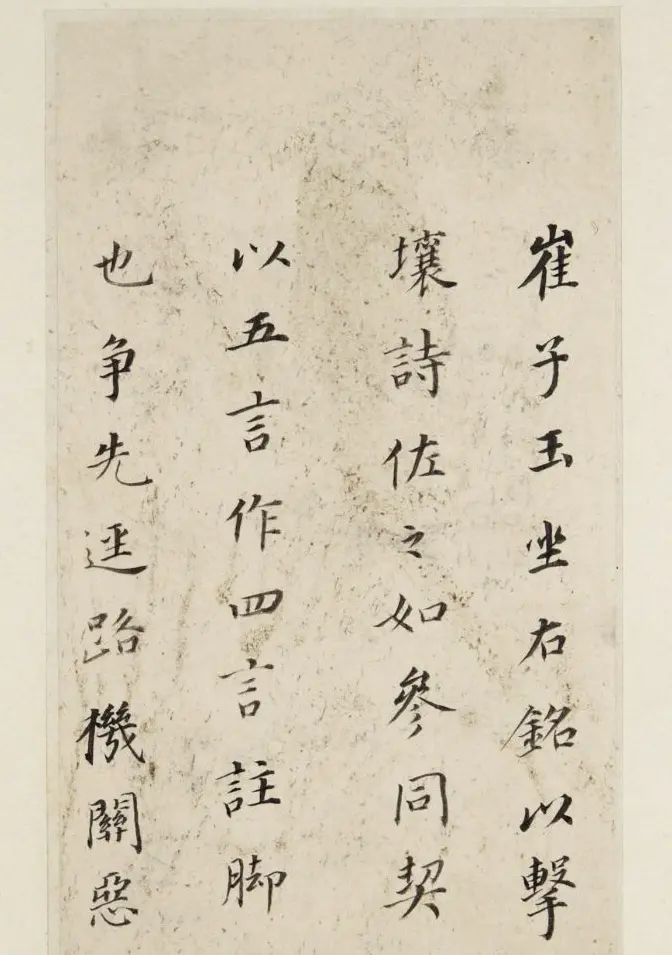 崔子玉坐右銘以擊
壤詩佐之如參同契
以五言作四言註脚
也争先逕路機關惡